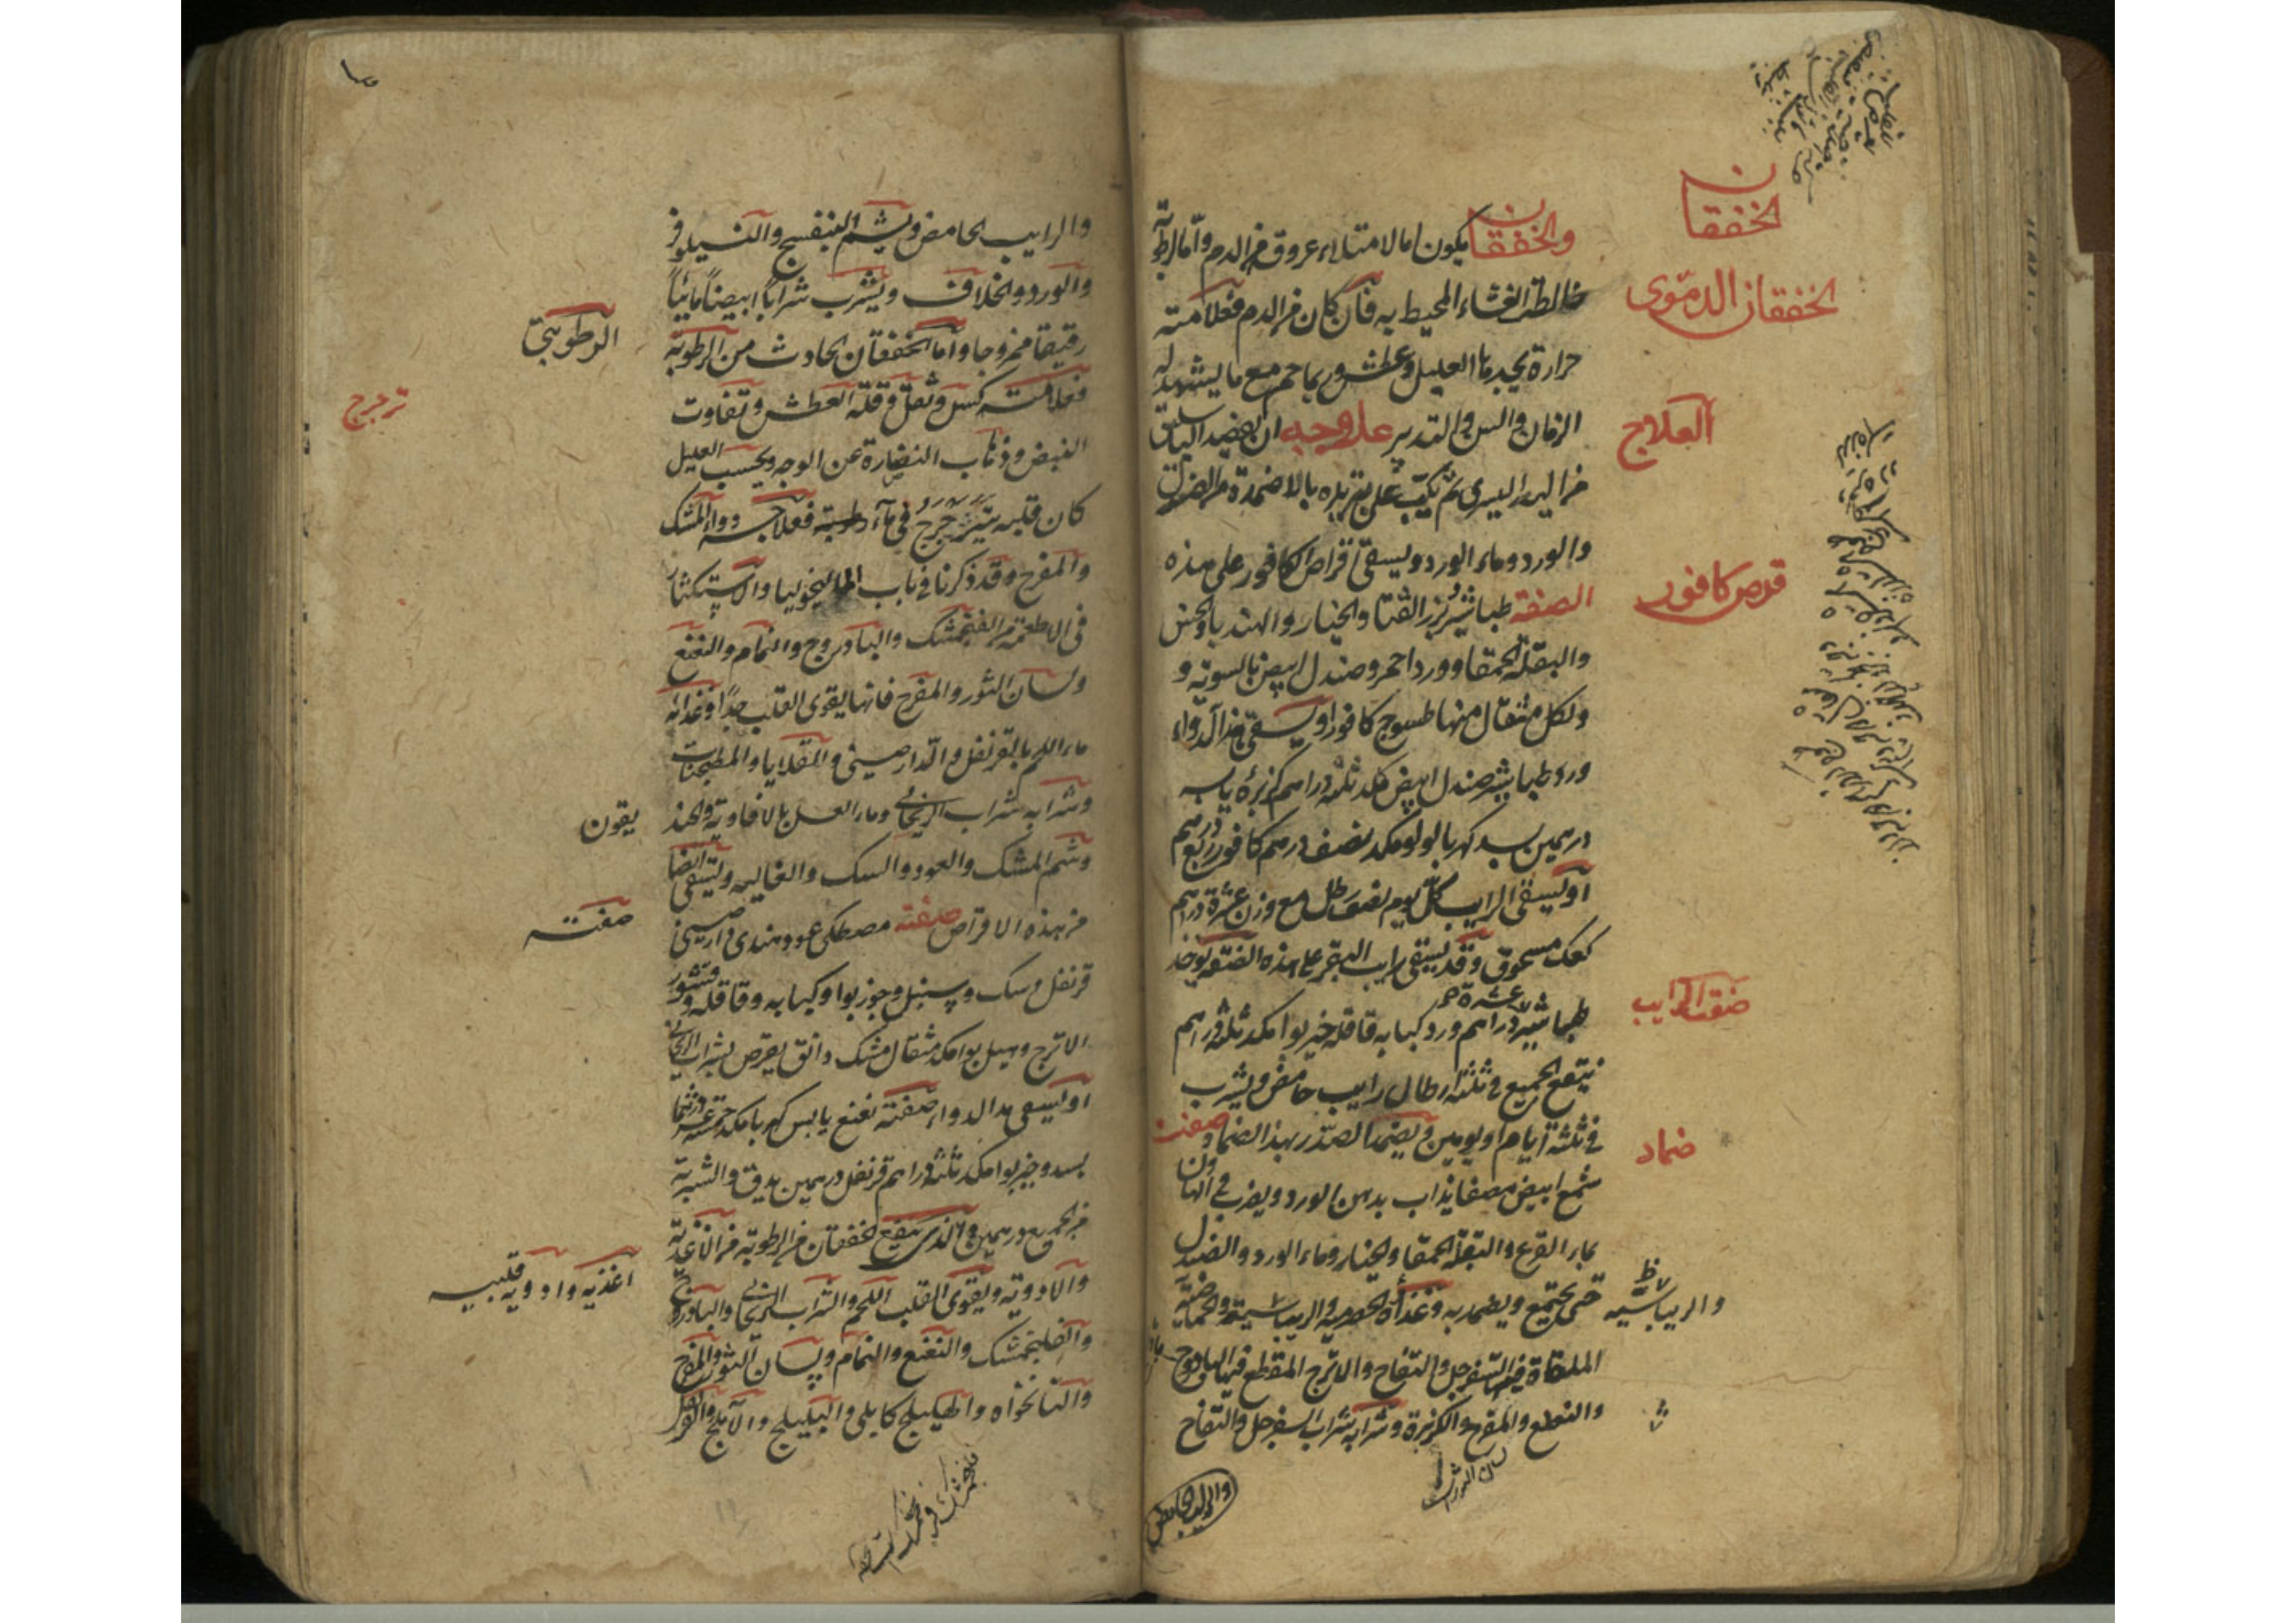 الخفقان
والخفقان يكون اما لامتلاء عروقه من الدم واما لرطوبة
الخفقان الدموى
خالطت الغشاء المحيط به فان كان من الدم فعلامته
حرارة يجدها العليل وعطش وربما حم مع ما يشهد له
العلاج
الزمان والسن والتدبير علاجه ان يفصد الباسليق
من اليد اليسرى ثم يكب على تبريده بالاضمدة من الصندل
والورد وماء الورد ويسقى اقراص الكافور على هذه
قرص كافور
الصفة طباشير بزر القثا والخيار والهندبا والخس
والبقلة الحمقا وورد احمر وصندل ابيض بالسوية و
ولكل مثقال منها طسوج كافورا ويسقى هذا الدواء
ورد طباشير صندل ابيض مكد ثلثة دراهم كزبرة يابسه
درهمين بسد كهربا لولو مكد نصف درهم كافور ربع درهم
او يسقى الرايب كل يوم نصف رطل مع وزن عشرة دراهم
كعك مسحوق وقد يسقى رايب البقر على هذه الصفة يوخذ
صفة الرايب
طباشير عشرة دراهم ورد كبابه قاقله خير بوا مكد ثلثة دراهم
ينقع الجميع فى ثلثة ارطال رايب حامض ويشرب
فى ثلثة ايام او يومين ويضمد الصدر بهذا الضماد وصفته
ضماد
شمع ابيض مصفا يذاب بدهن الورد ويضرب فى الهاون
بماء القرع والبقلة الحمقا والخيار وماء الورد والصندل
حتى يجتمع ويضمد به وغذاه الحصرمية والريباسية والحماضية
والريباسيه
الملقاة فيها السفرجل والتفاح والاترج المقطع فيها البادروج
والنعنع والمفرح والكزبرة وشرابه شراب السفرجل والتفاح
لسان الثور
والرايب الحامض
والرايب الحامض ويشم البنفسج والنيلوفر
والورد والخلاف ويشرب شرابا ابيضا مائيا
رقيقا ممزوجا واما الخفقان الحادث من الرطوبة
الرطوبتى
فعلامته كسل وثقل وقلة العطش وتفاوت
ترجرج
النبض وذهاب النضارة عن الوجه ويحسب العليل
كان قلبه يترجرج فى ماء رطوبة فعلاجه دواء المشك
والمفرح وقد ذكرنا فى باب الماليخوليا والاستكثار
فى الاطعمة من الفنجمشك والبادروج والنمام والنعنع
ولسان الثور والمفرح فانها يقوى القلب جدا وغذائه
ماء اللحم بالقرنفل والدارصينى والقلايا والمطجنات
وشرابه شراب الريحانى وماء العسل بالافاويه والخند
يقون
وشم المشك والعود والسك والغاليه ويسقى ايضا
من هذه الاقراص صفته مصطكى عود هندى دارصينى
صفته
قرنفل وسك وسنبل وجوز بوا وكبابه وقاقله وقشور
الاترج وهيل بوا مكد مثقال مشك دانق يقرص بشراب الريحانى
او يسقى هذا الدواء صفته نعنع يابس كهربا مكد خمسة عشر درهما
بسد وخير بوا مكد ثلثة دراهم قرنفل درهمين يدق والشربة
من الجميع درهمين والذى ينفع الخفقان من الرطوبة من الاغذية
والادوية ويقوى القلب اللحم والشراب الريحانى والبادروج
اغذيه وادويه قلبيه
والفلنجمشك والنعنع والنمام ولسان الثور والمفرح
والنانخواه والهليلج كابلى والبليلج والاملج والقرنفل